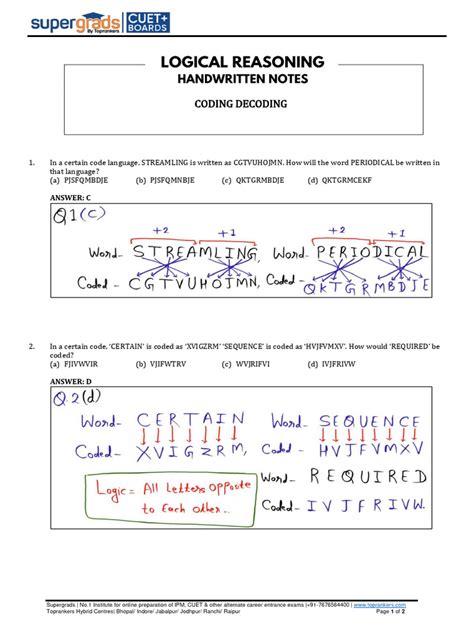 supergrads
By Toprankers
CUET+
& BOARDS
LOGICAL REASONING
HANDWRITTEN NOTES
CODING DECODING
1. In a certain code language, STREAMLING is written as CGTVUHOJMN. How will the word PERIODICAL be written in
that language?
(a) PJSFQMBDJE (b) PJSFQMNBJE (c) QKTGRMBDJE (d) QKTGRMCEKF
ANSWER: C
Q1(c)
+2 +1 +2 +1
Word- STREAMLING, Word- PERIODICAL
Coded- CGTVUHOJMN, Coded- QKTGRMBDJE
2. In a certain code, 'CERTAIN' is coded as 'XVIGZRM' 'SEQUENCE' is coded as 'HVJFVMXV'. How would 'REQUIRED' be
coded?
(a) FJIVWVIR (b) VJIFWTRV (c) WVJRIFVI (d) IVJFRIVW
ANSWER: D
Q.2(d)
Word- CERTAIN Word- SEQUENCE
Coded- XVIGZRM, Coded- HVJFVMXV
Logic= All Letters Opposite
to Each other.
Word- REQUIRED
Coded- IVJFRIVW.
Supergrads | No.1 Institute for online preparation of IPM, CUET & other alternate career entrance exams |+91-7676564400 | www.toprankers.com
Toprankers Hybrid Centres| Bhopal/ Indore/ Jabalpur/ Jodhpur/ Ranchi/ Raipur Page 1 of 2